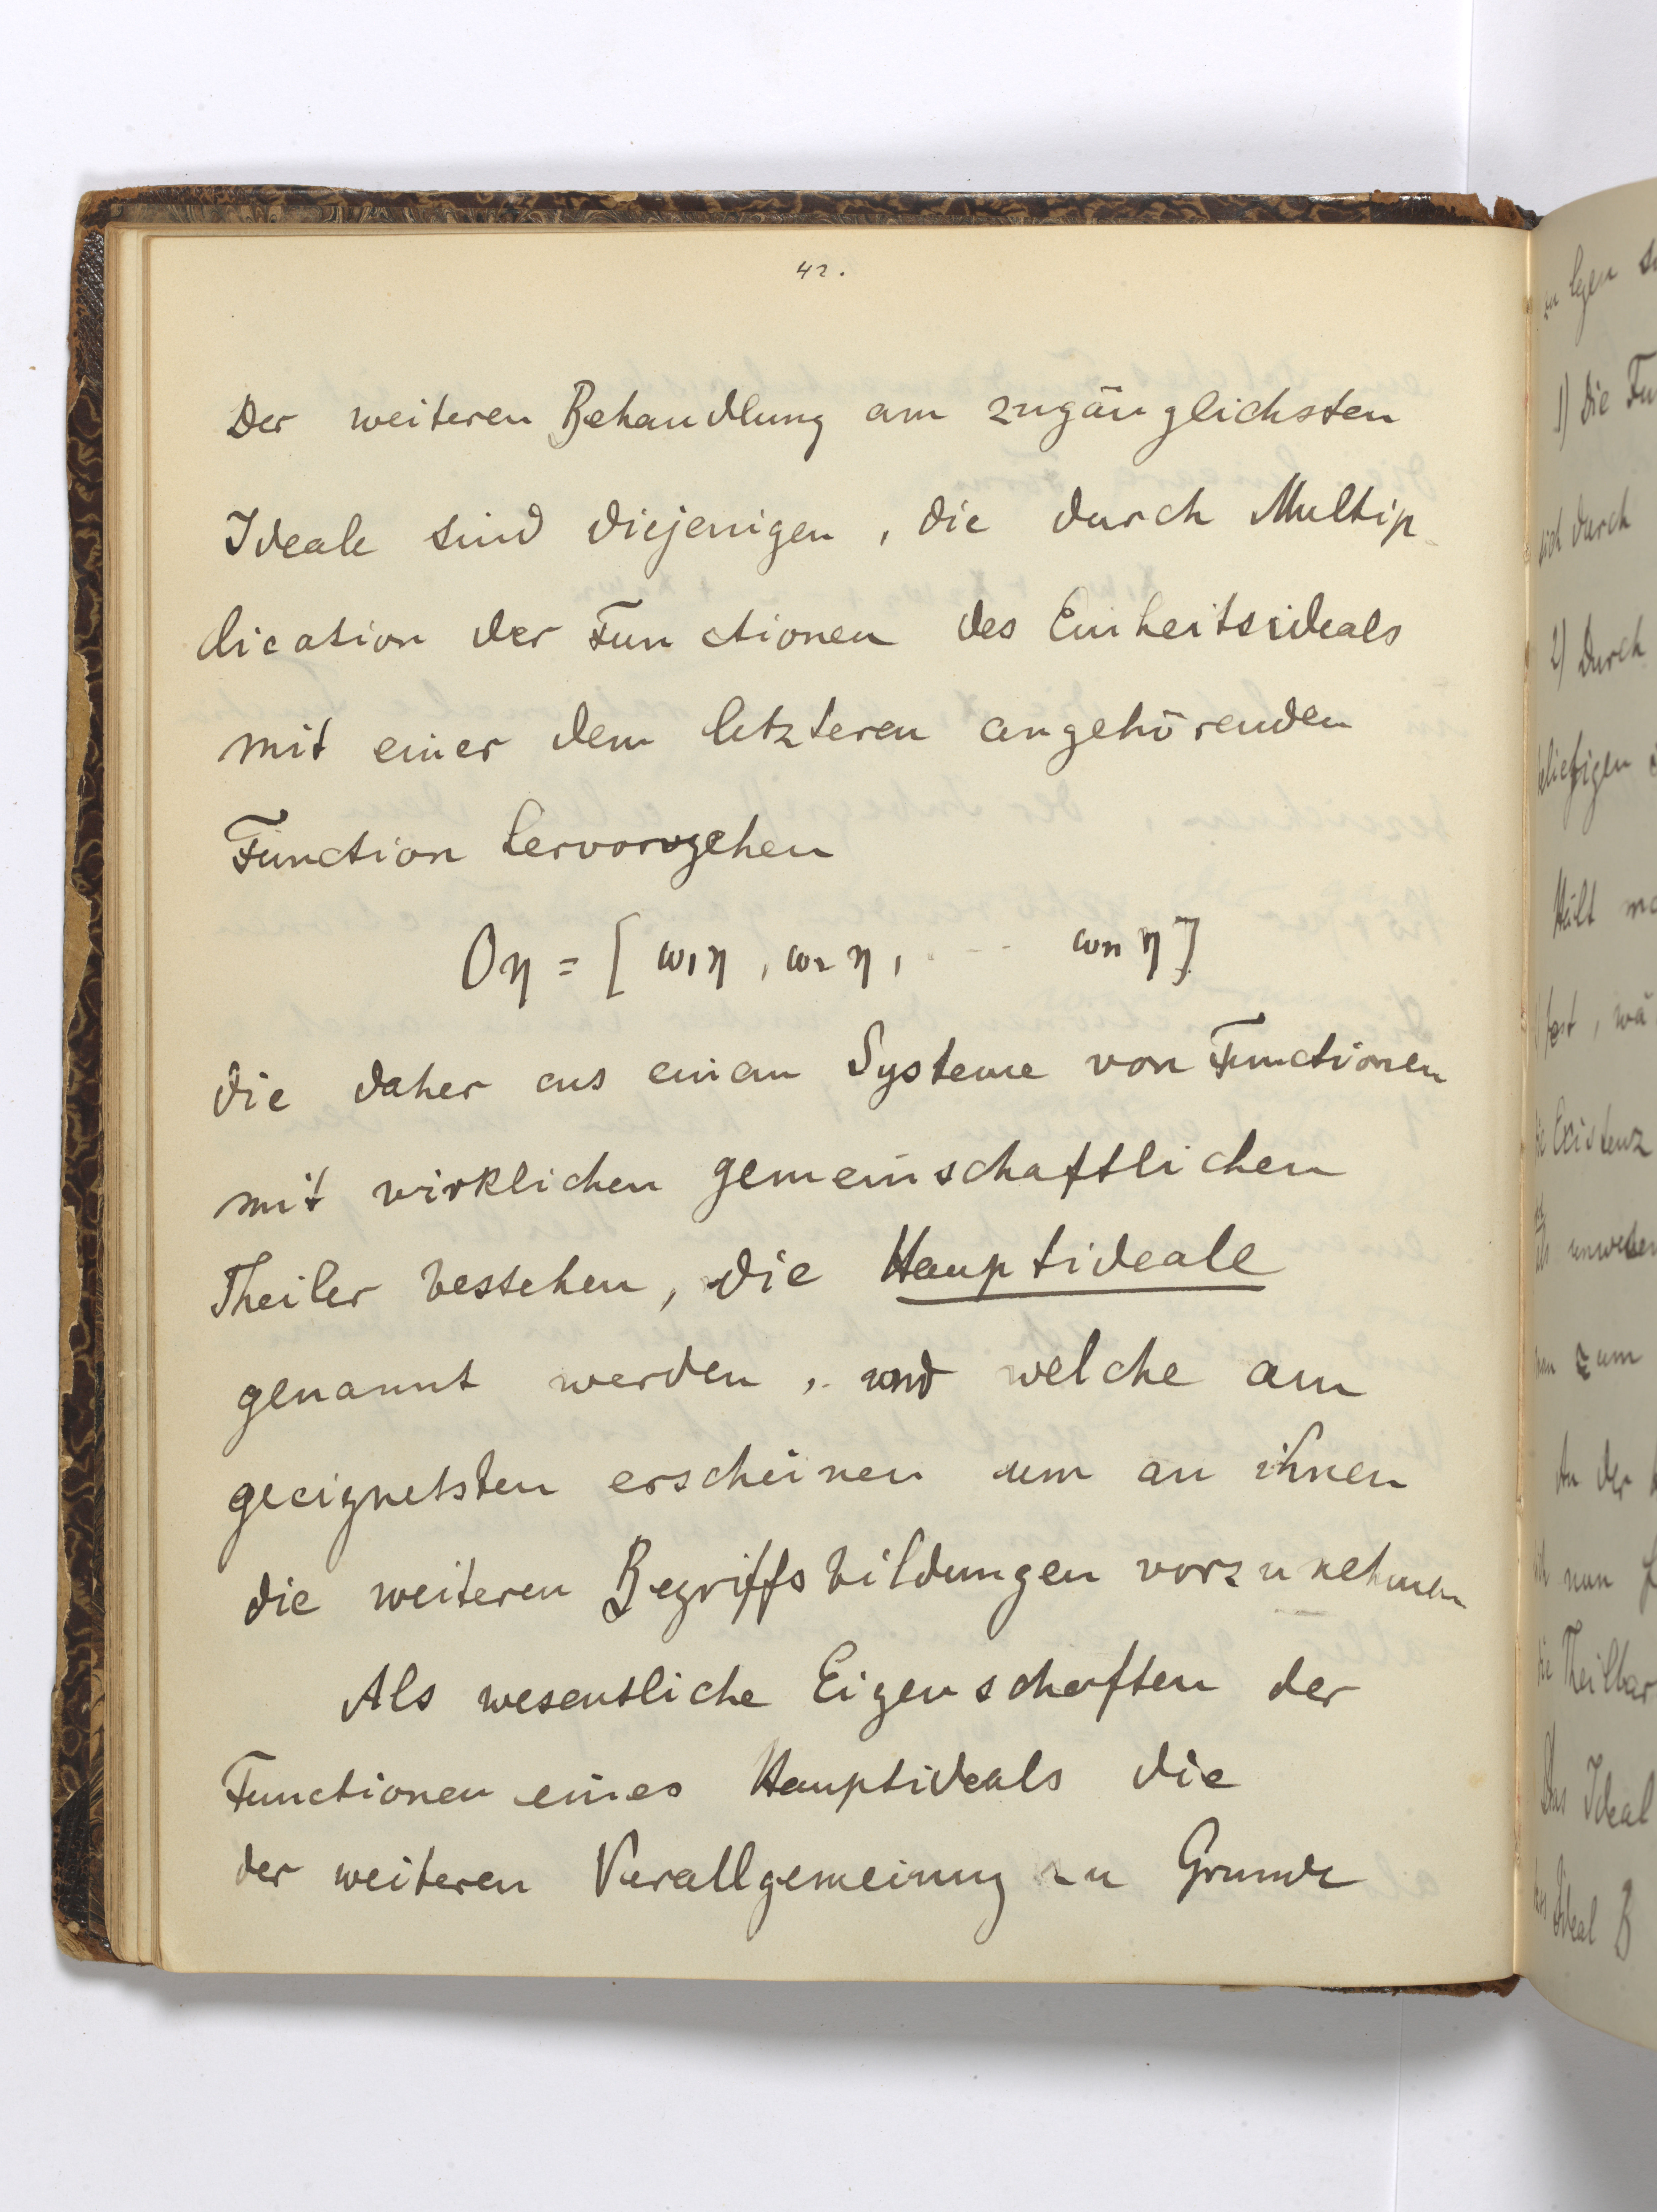 42.
Der weiteren Behandlung am zugänglichsten
Ideale sind diejenigen, die durch Multip-
lication der Functionen des Einheitsideals
mit einer dem letzteren angehörenden
Function hervorgehen
Oη = [ω₁η, ω₂η, . - - ωₙη]
die daher aus einem Systeme von Functionen
mit wirklichen gemeinschaftlichen
Theiler bestehen, die Hauptideale
genannt werden, und welche am
geeignetsten erscheinen um an ihnen
die weiteren Begriffsbildungen vorzunehmen
Als wesentliche Eigenschaften der
Functionen eines Hauptideals die
der weiteren Verallgemeinung zu Grunde
1) Die
sich durch
2) Durch
beliebigen
Hält
fest, wä
die Existenz
zum
An der
nun
die Theilbar
Das Ideal
Ideal B